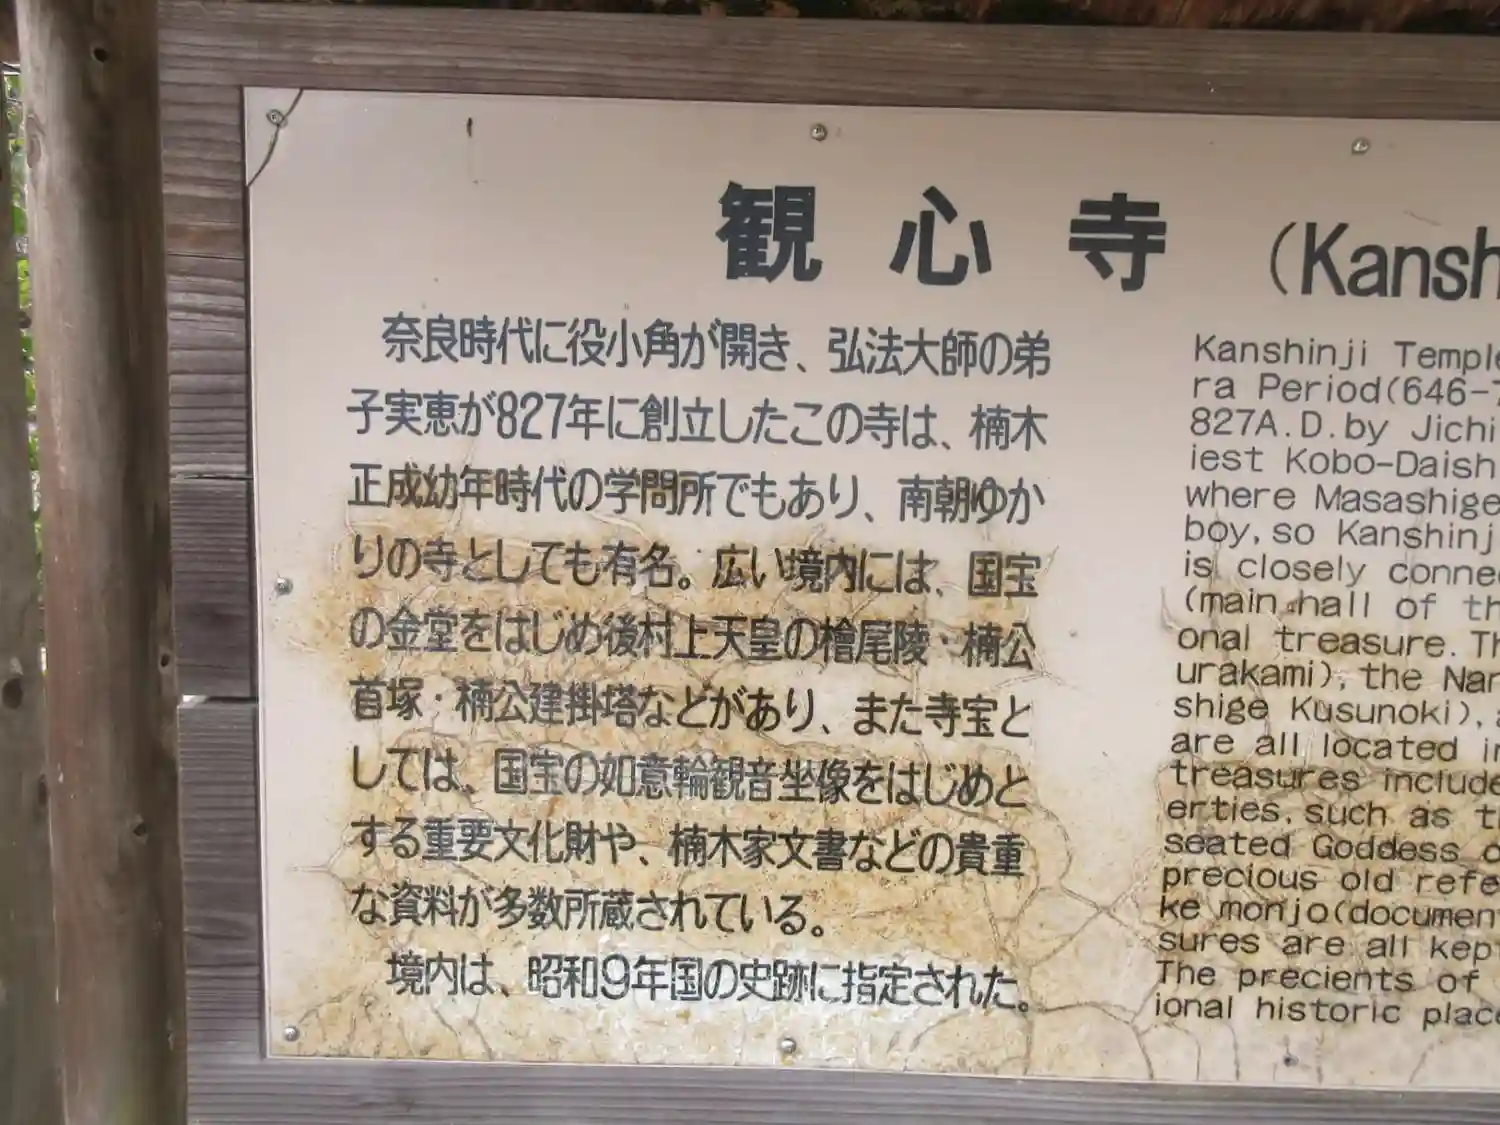 観心寺 (Kansh
奈良時代に役小角が開き、弘法大師の弟
子実恵が827年に創立したこの寺は、楠木
正成幼年時代の学問所でもあり、南朝ゆか
りの寺としても有名。広い境内には、国宝
の金堂をはじめ後村上天皇の檜尾陵・楠公
首塚・楠公建掛塔などがあり、また寺宝と
しては、国宝の如意輪観音坐像をはじめと
する重要文化財や、楠木家文書などの貴重
な資料が多数所蔵されている。
境内は、昭和9年国の史跡に指定された。
Kanshinji Temple
ra Period(646-7
827A.D.by Jichi
iest Kobo-Daish
where Masashige
boy,so Kanshinj
is closely conne
(main hall of th
onal treasure.Th
urakami),the Nan
shige Kusunoki),
are all located in
treasures include
erties,such as t
seated Goddess o
precious old refe
ke monjo(documen
sures are all kep
The precients of
ional historic place